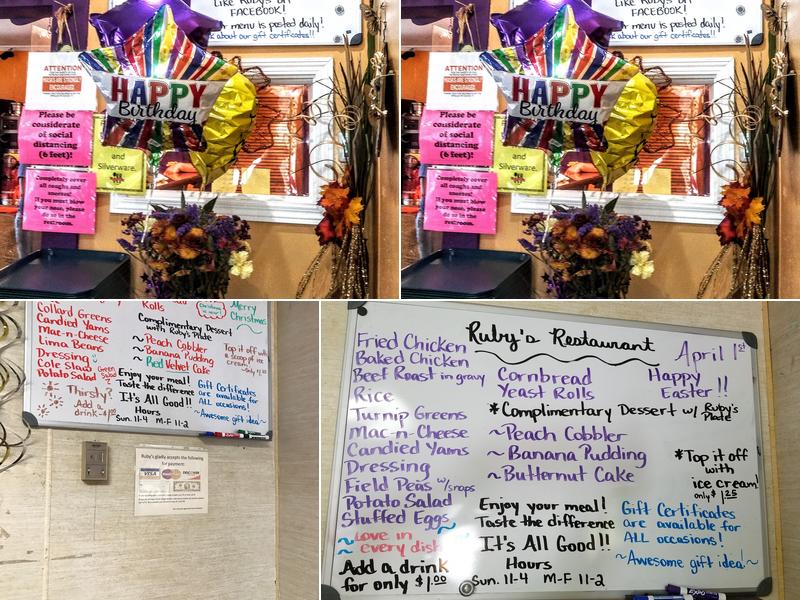 LIKE RUBY'S ON
FACEBOOK!
r menu is posted daily!
k about our gift certificates!!
ATTENTION
ENCOURAGED
HAPPY
Birthday
Please be
considerate
of social
distancing
(6 feet)!
and
Silverware.
Completely cover
all coughs and
sneezes!
If you must blow
your nose, please
do so in the
restroom.
LIKE RUBY'S ON
FACEBOOK!
r menu is posted daily!
k about our gift certificates!!
ATTENTION
ENCOURAGED
HAPPY
Birthday
Please be
considerate
of social
distancing
(6 feet)!
and
Silverware.
Completely cover
all coughs and
sneezes!
If you must blow
your nose, please
do so in the
restroom.
Collard Greens
Candied Yams
Mac-n-Cheese
Lima Beans
Dressing
Cole Slaw
Potato Salad
Green Salad
Thirsty?
Add a
drink
Rolls
Complimentary Dessert
with Ruby's Plate
~ Peach Cobbler
~ Banana Pudding
~ Red Velvet Cake
Merry
Christmas
Top it off with
a scoop of ice
cream!
Enjoy your meal!
Taste the difference
It's All Good!!
Hours
Sun. 11-4 M-F 11-2
Gift Certificates
are available for
ALL occasions!
~Awesome gift idea!~
Ruby's gladly accepts the following
for payment:
VISA
DISCOVER
Ruby's Restaurant
April 1st
Fried Chicken
Baked Chicken
Beef Roast in gravy
Rice
Turnip Greens
Mac-n-Cheese
Candied Yams
Dressing
Field Peas w/snaps
Potato Salad
Stuffed Eggs
~ Love in ~
~ every dish
Add a drink
for only $1.00
Cornbread
Yeast Rolls
Happy
Easter!!
*Complimentary Dessert w/ Ruby's Plate
~Peach Cobbler
~Banana Pudding
~Butternut Cake
*Top it off
with
ice cream!
only $1.25
Enjoy your meal!
Taste the difference
It's All Good!!
Hours
Sun. 11-4 M-F 11-2
Gift Certificates
are available for
ALL occasions!
~Awesome gift idea!~